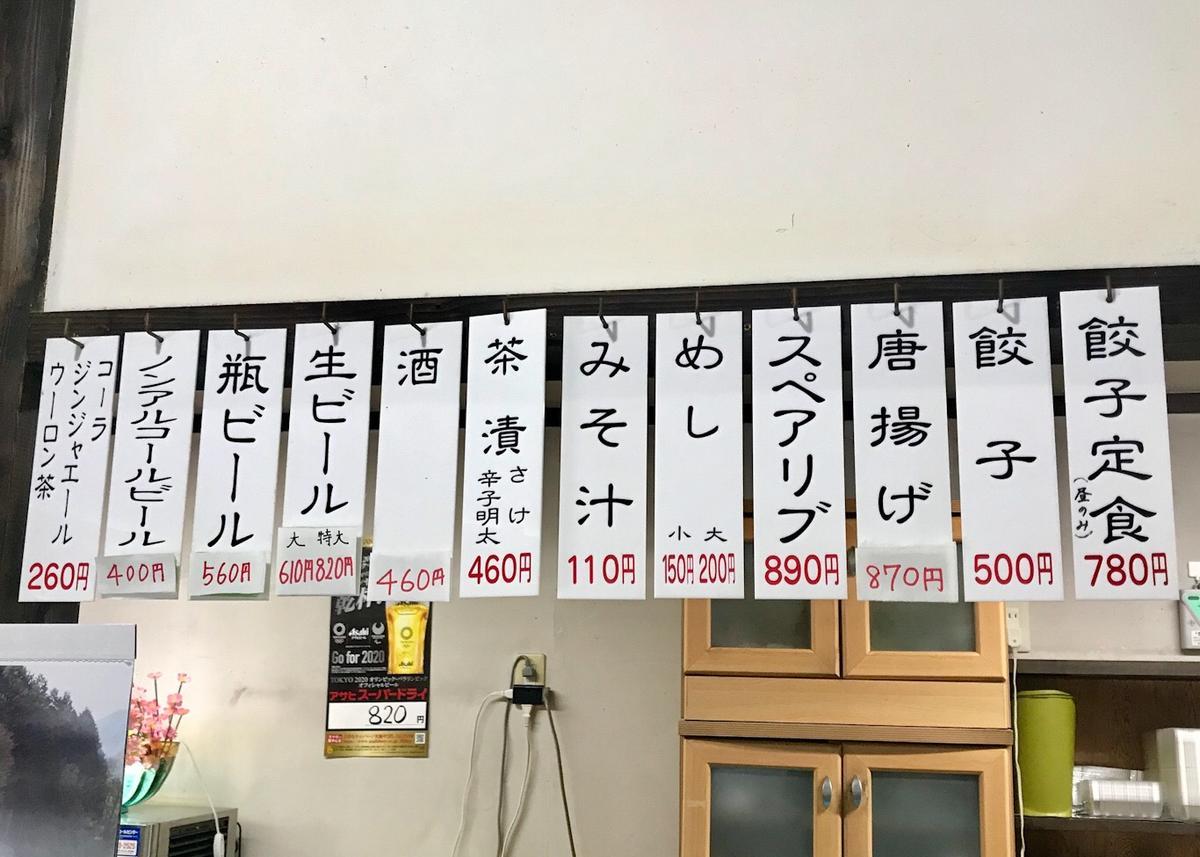 餃子定食
(昼のみ)
780円
餃子
500円
唐揚げ
870円
スペアリブ
890円
めし
大
200円
小
150円
みそ汁
110円
茶漬
さけ
辛子明太
460円
酒
460円
生ビール
特大
820円
大
610円
瓶ビール
560円
ノンアルコールビール
400円
コーラ
ジンジャエール
ウーロン茶
260円
乾杯
Asahi
Go for 2020
TOKYO 2020 オリンピック・パラリンピック
オフィシャルビール
アサヒスーパードライ
820円